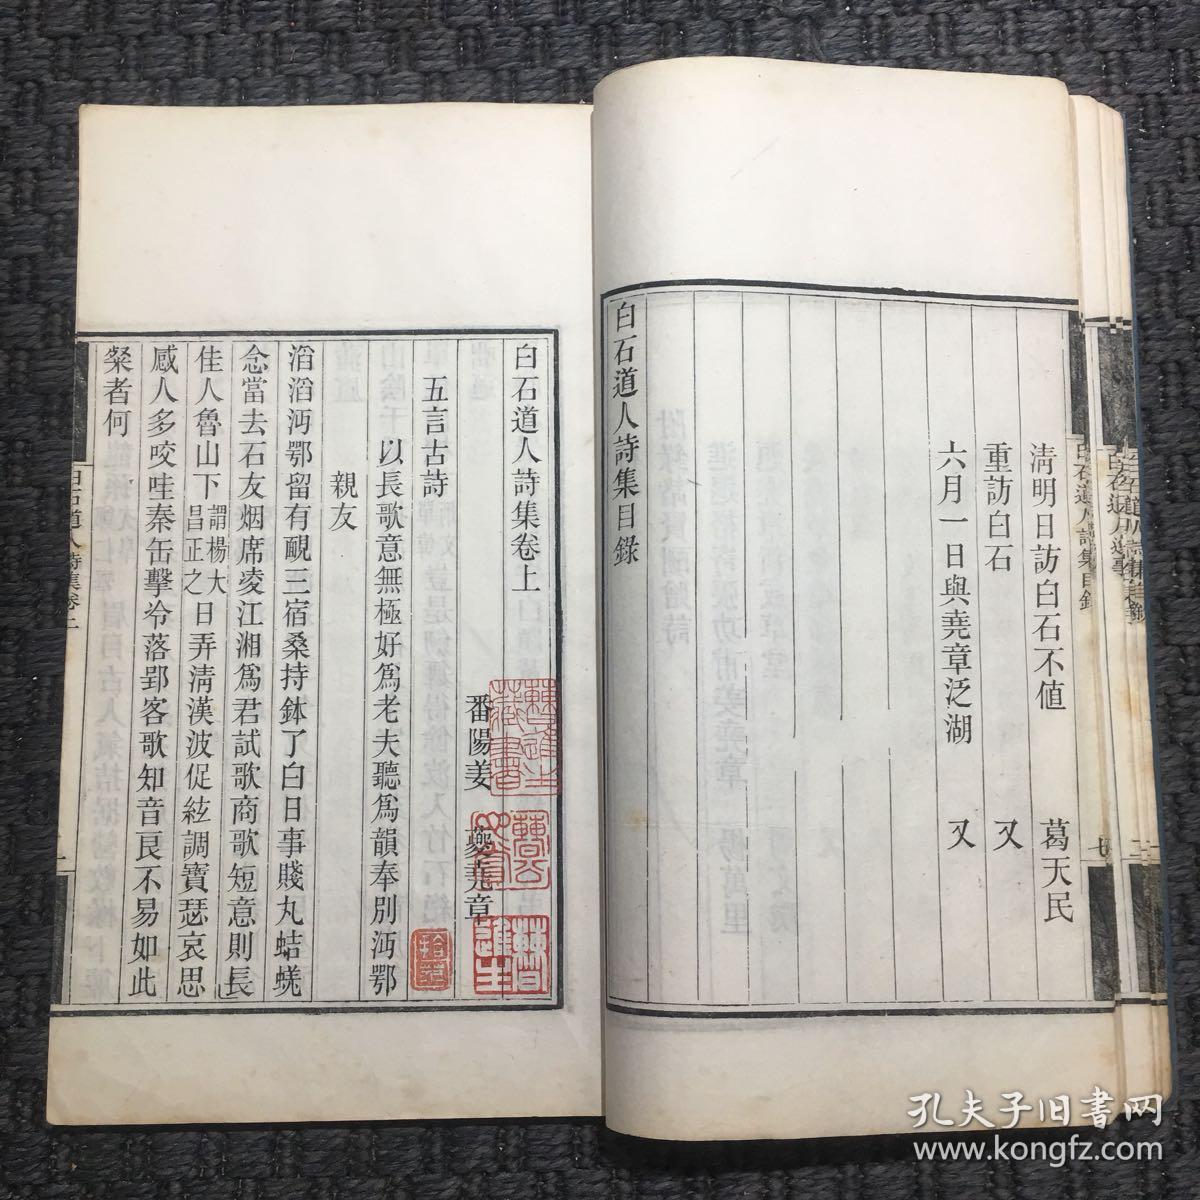 清明日訪白石不値 葛天民
重訪白石 又
六月一日與堯章泛湖 又
白石道人詩集目錄
白石道人詩集目錄
七
白石道人詩集卷上
番陽姜 夔堯章
五言古詩
以長歌意無極好爲老夫聽爲韻奉別沔鄂
親友
滔滔沔鄂留有靦三宿桑持鉢了白日事賤丸蛣蜣
念當去石友烟席凌江湘爲君試歌商歌短意則長
佳人魯山下謂楊大昌正之日弄清漢波促絃調寶瑟哀思
感人多咬哇秦缶擊冷落郢客歌知音良不易如此
粲者何
白石道人詩集卷上
一
孔夫子旧書网
www.kongfz.com